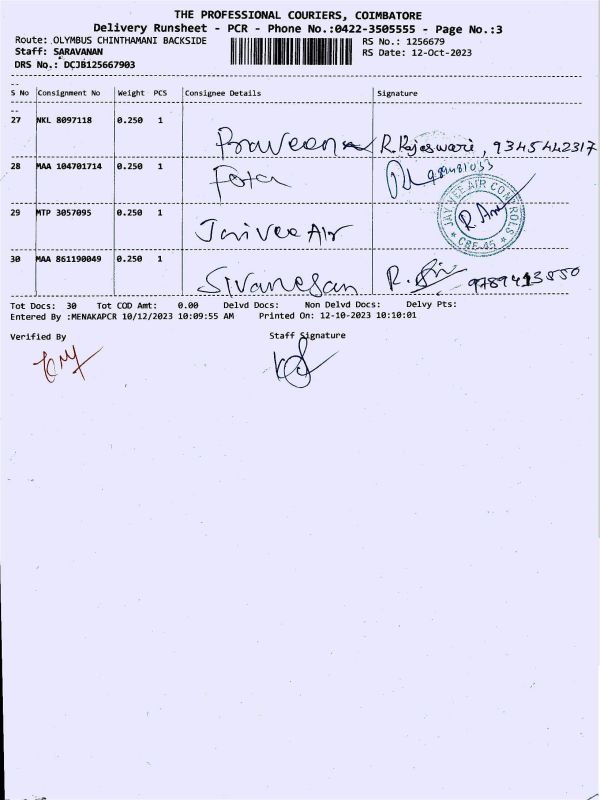 THE PROFESSIONAL COURIERS, COIMBATORE
Delivery Runsheet - PCR - Phone No.:0422-3505555 - Page No.:3
Route: OLYMBUS CHINTHAMANI BACKSIDE RS No.: 1256679
Staff: SARAVANAN RS Date: 12-Oct-2023
DRS No.: DCJB125667903
S No Consignment No Weight PCS Consignee Details Signature
27 NKL 8097118 0.250 1
Praveena R. Rajeswari, 9345442317
28 MAA 104701714 0.250 1
29 MTP 3057095 0.250 1
JAY VEE AIR CONTROLS
CBE-45
Jaivee Air
30 MAA 861190049 0.250 1
Sivanesan R.
Tot Docs: 30 Tot COD Amt: 0.00 Delvd Docs: Non Delvd Docs: Delvy Pts:
Entered By :MENAKAPCR 10/12/2023 10:09:55 AM Printed On: 12-10-2023 10:10:01
Verified By Staff Signature